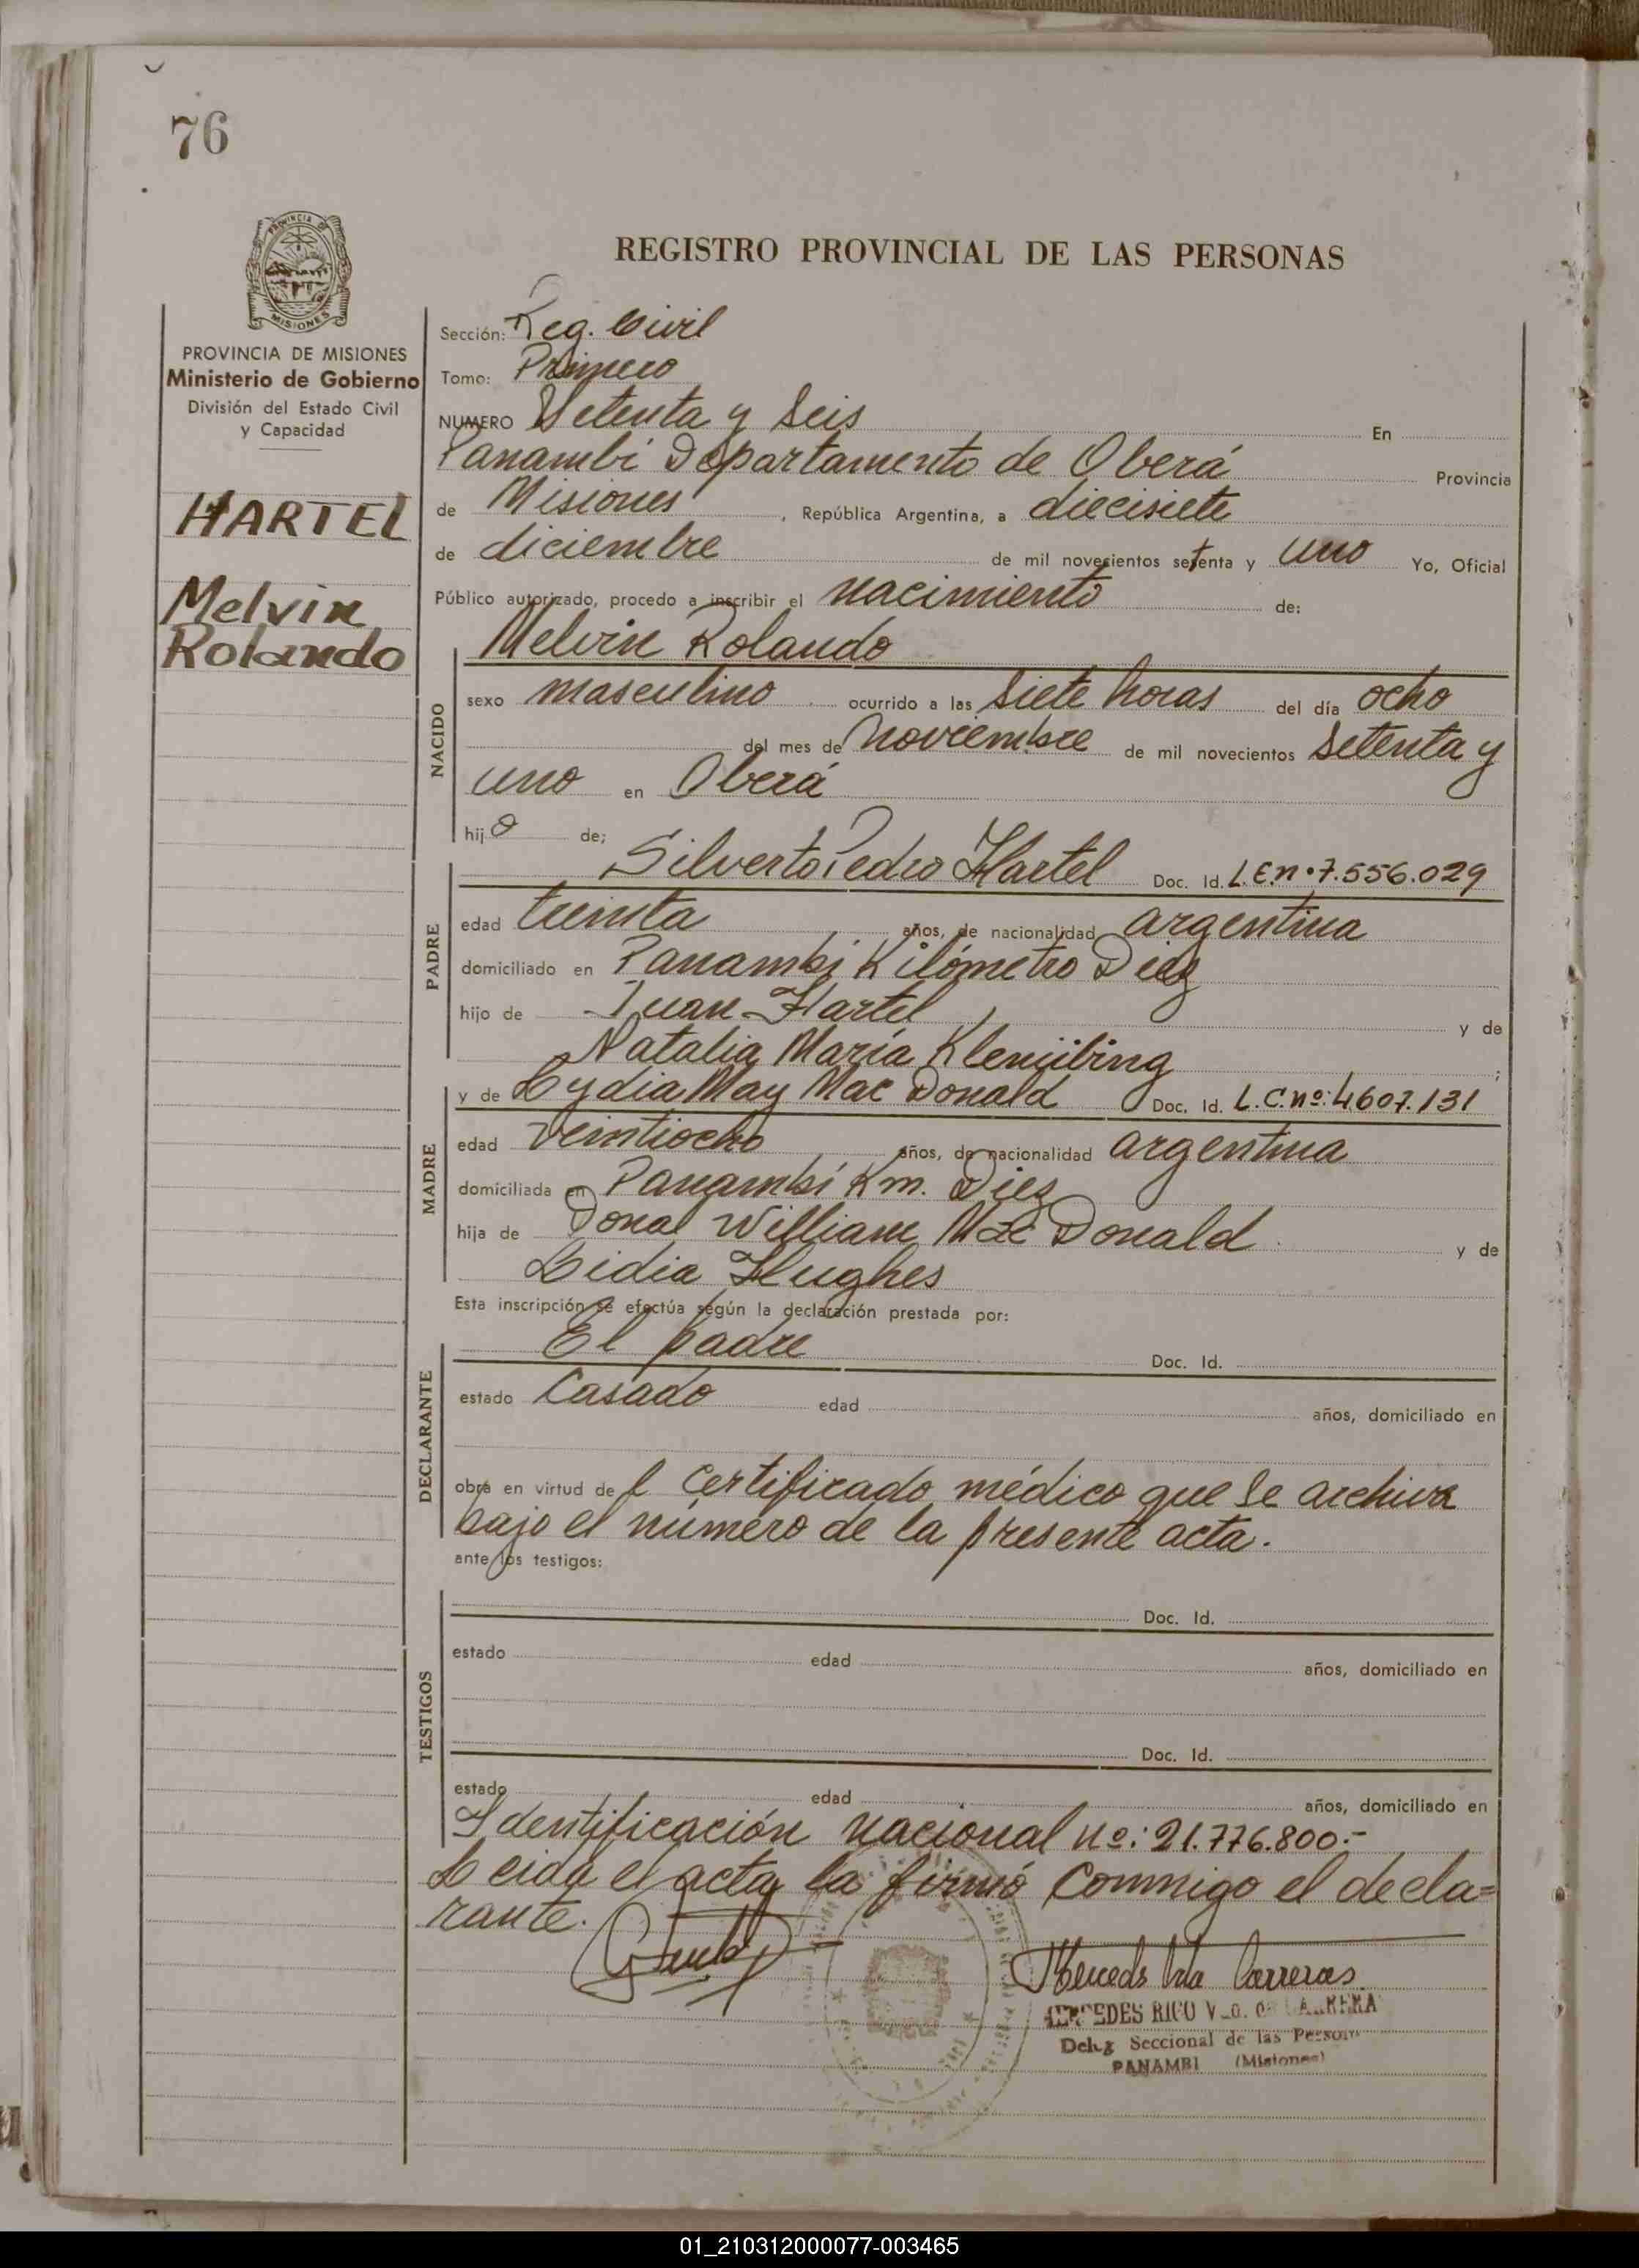 76
PROVINCIA DE
MISIONES
REGISTRO PROVINCIAL DE LAS PERSONAS
PROVINCIA DE MISIONES
Ministerio de Gobierno
División del Estado Civil
y Capacidad
HARTEL
Melvin
Rolando
Sección: Reg. Civil
Tomo: Primero
NUMERO Setenta y Seis En
Panambí Departamento de Oberá Provincia
de Misiones, República Argentina, a diecisiete
de diciembre de mil novecientos setenta y uno Yo, Oficial
Público autorizado, procedo a inscribir el nacimiento de:
Melvin Rolando
NACIDO
sexo masculino ocurrido a las siete horas del día ocho
del mes de noviembre de mil novecientos setenta y
uno en Oberá
hijo de;
PADRE
Silverto Pedro Hartel Doc. Id. L.E.nº7.556.029
edad treinta años, de nacionalidad argentina
domiciliado en Panambí Kilómetro Diez
hijo de Juan Hartel y de
Natalia María Klenübing;
MADRE
y de Lydia May Mac Donald Doc. Id. L.C.nº:4.607.131
edad veintiocho años, de nacionalidad argentina
domiciliada en Panambí Km. Diez
hija de Donal William Mac Donald y de
Lidia Hughes
Esta inscripción se efectúa según la declaración prestada por:
DECLARANTE
El padre Doc. Id.
estado Casado edad años, domiciliado en
obra en virtud del certificado médico que se archiva
bajo el número de la presente acta.
ante los testigos:
TESTIGOS
Doc. Id.
estado edad años, domiciliado en
Doc. Id.
estado edad años, domiciliado en
Identificación nacional nº: 21.776.800.-
Leida el acta la firmó conmigo el decla=
rante.
Mercedes Vda Carreras
MERCEDES RICO Vda. de CARRERA
Deleg Seccional de las Person
PANAMBI (Misiones)
01_210312000077-003465